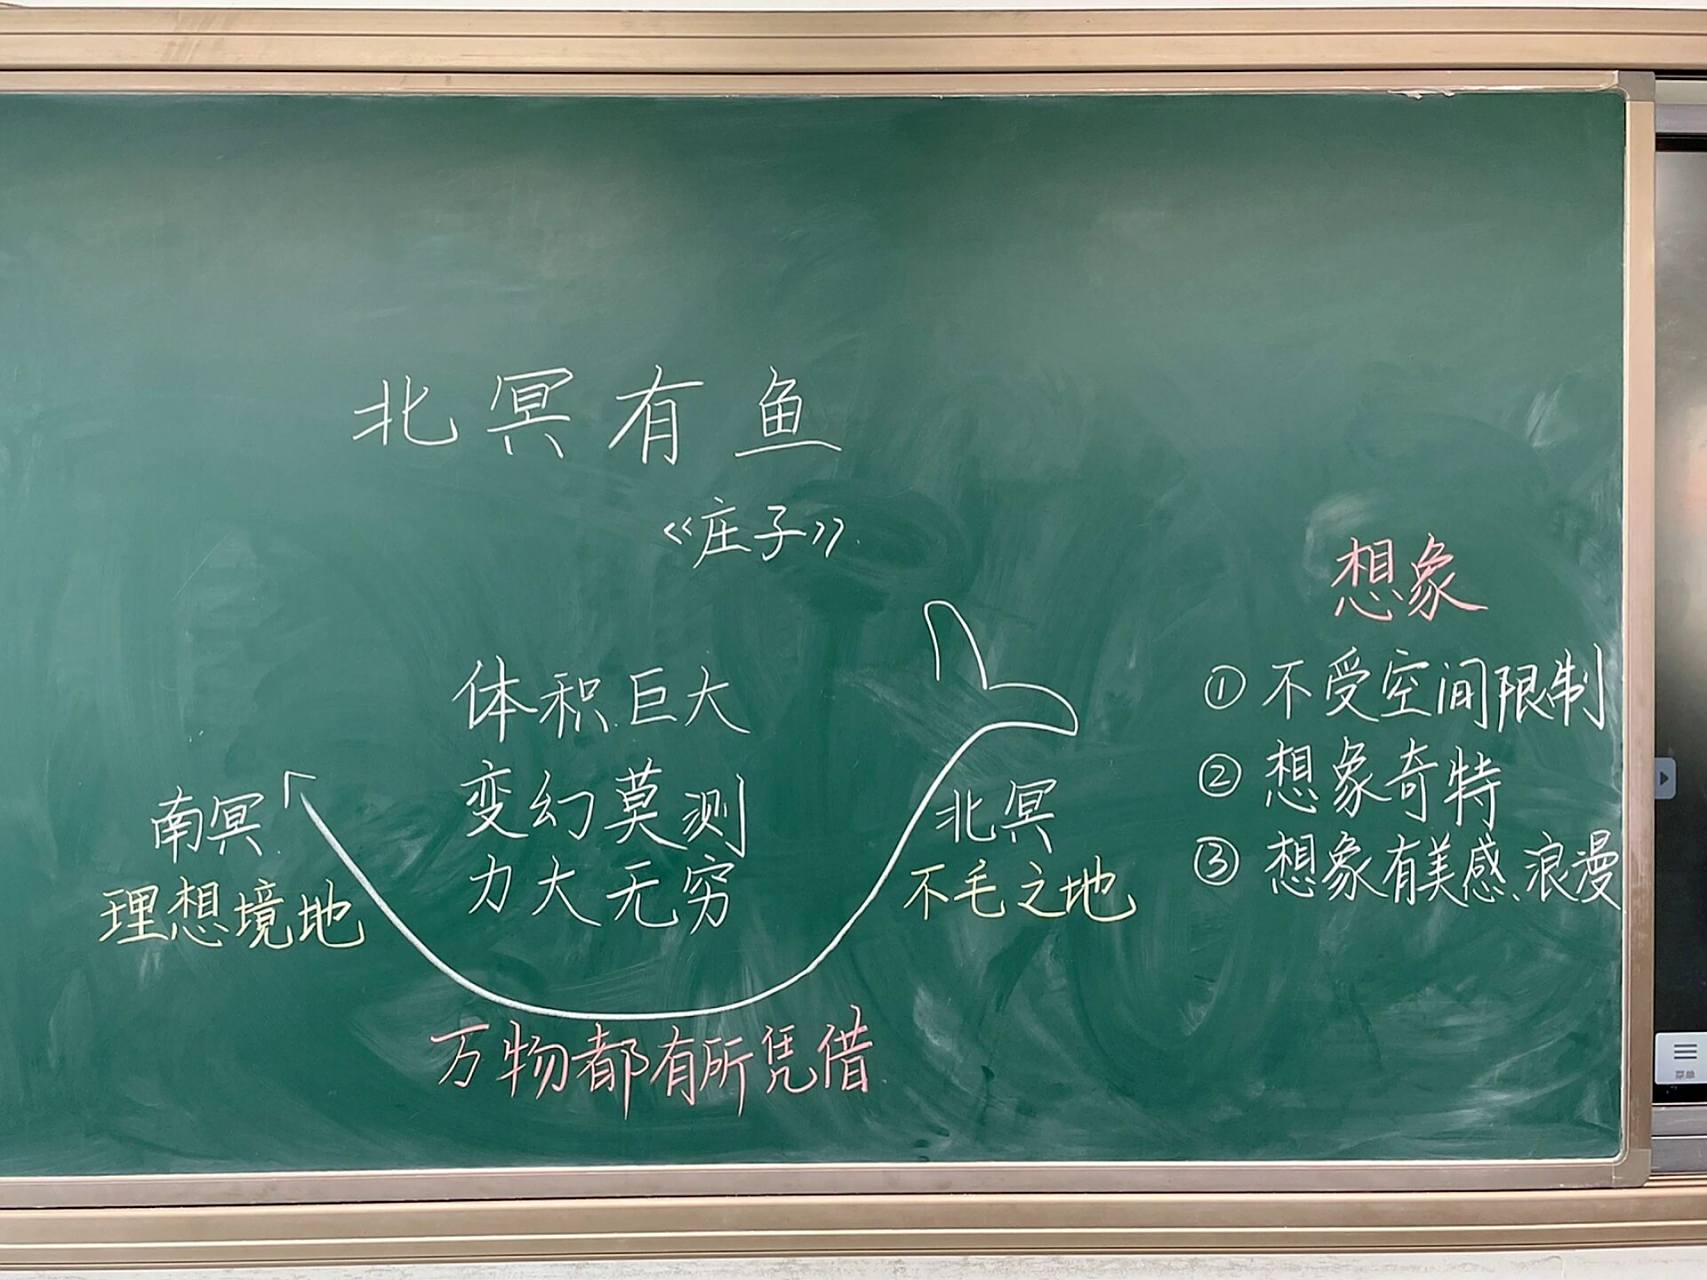 北冥有鱼
《庄子》
体积巨大
变幻莫测
力大无穷
南冥
理想境地
北冥
不毛之地
万物都有所凭借
想象
①不受空间限制
②想象奇特
③想象有美感、浪漫
菜单